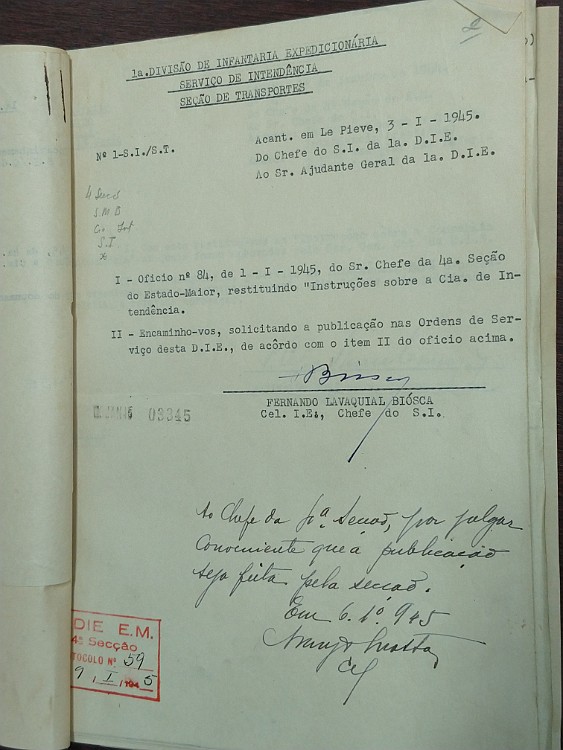 1a. DIVISÃO DE INFANTARIA EXPEDICIONÁRIA
SERVIÇO DE INTENDÊNCIA
SEÇÃO DE TRANSPORTES
Nº 1-S.I./S.T.
Acant. em Le Pieve, 3 - I - 1945.
Do Chefe do S.I. da 1a. D.I.E.
Ao Sr. Ajudante Geral da 1a. D.I.E.
S M B
S.I
I - Oficio nº 84, de 1 - I - 1945, do Sr. Chefe da 4a. Seção
do Estado-Maior, restituindo "Instruções sobre a Cia. de In-
tendência.
II - Encaminho-vos, solicitando a publicação nas Ordens de Ser-
viço desta D.I.E., de acôrdo com o item II do oficio acima.
FERNANDO LAVAQUIAL BIÓSCA
Cel. I.E., Chefe do S.I.
03345
Ao Chefe da 4ª Secão, por julgar
conveniente que a publicação
seja feita pela secão.
Em 6. 1º 945
Cel
DIE E.M.
4ª Secção
TOCOLO Nº 59
9 / I / 194 5